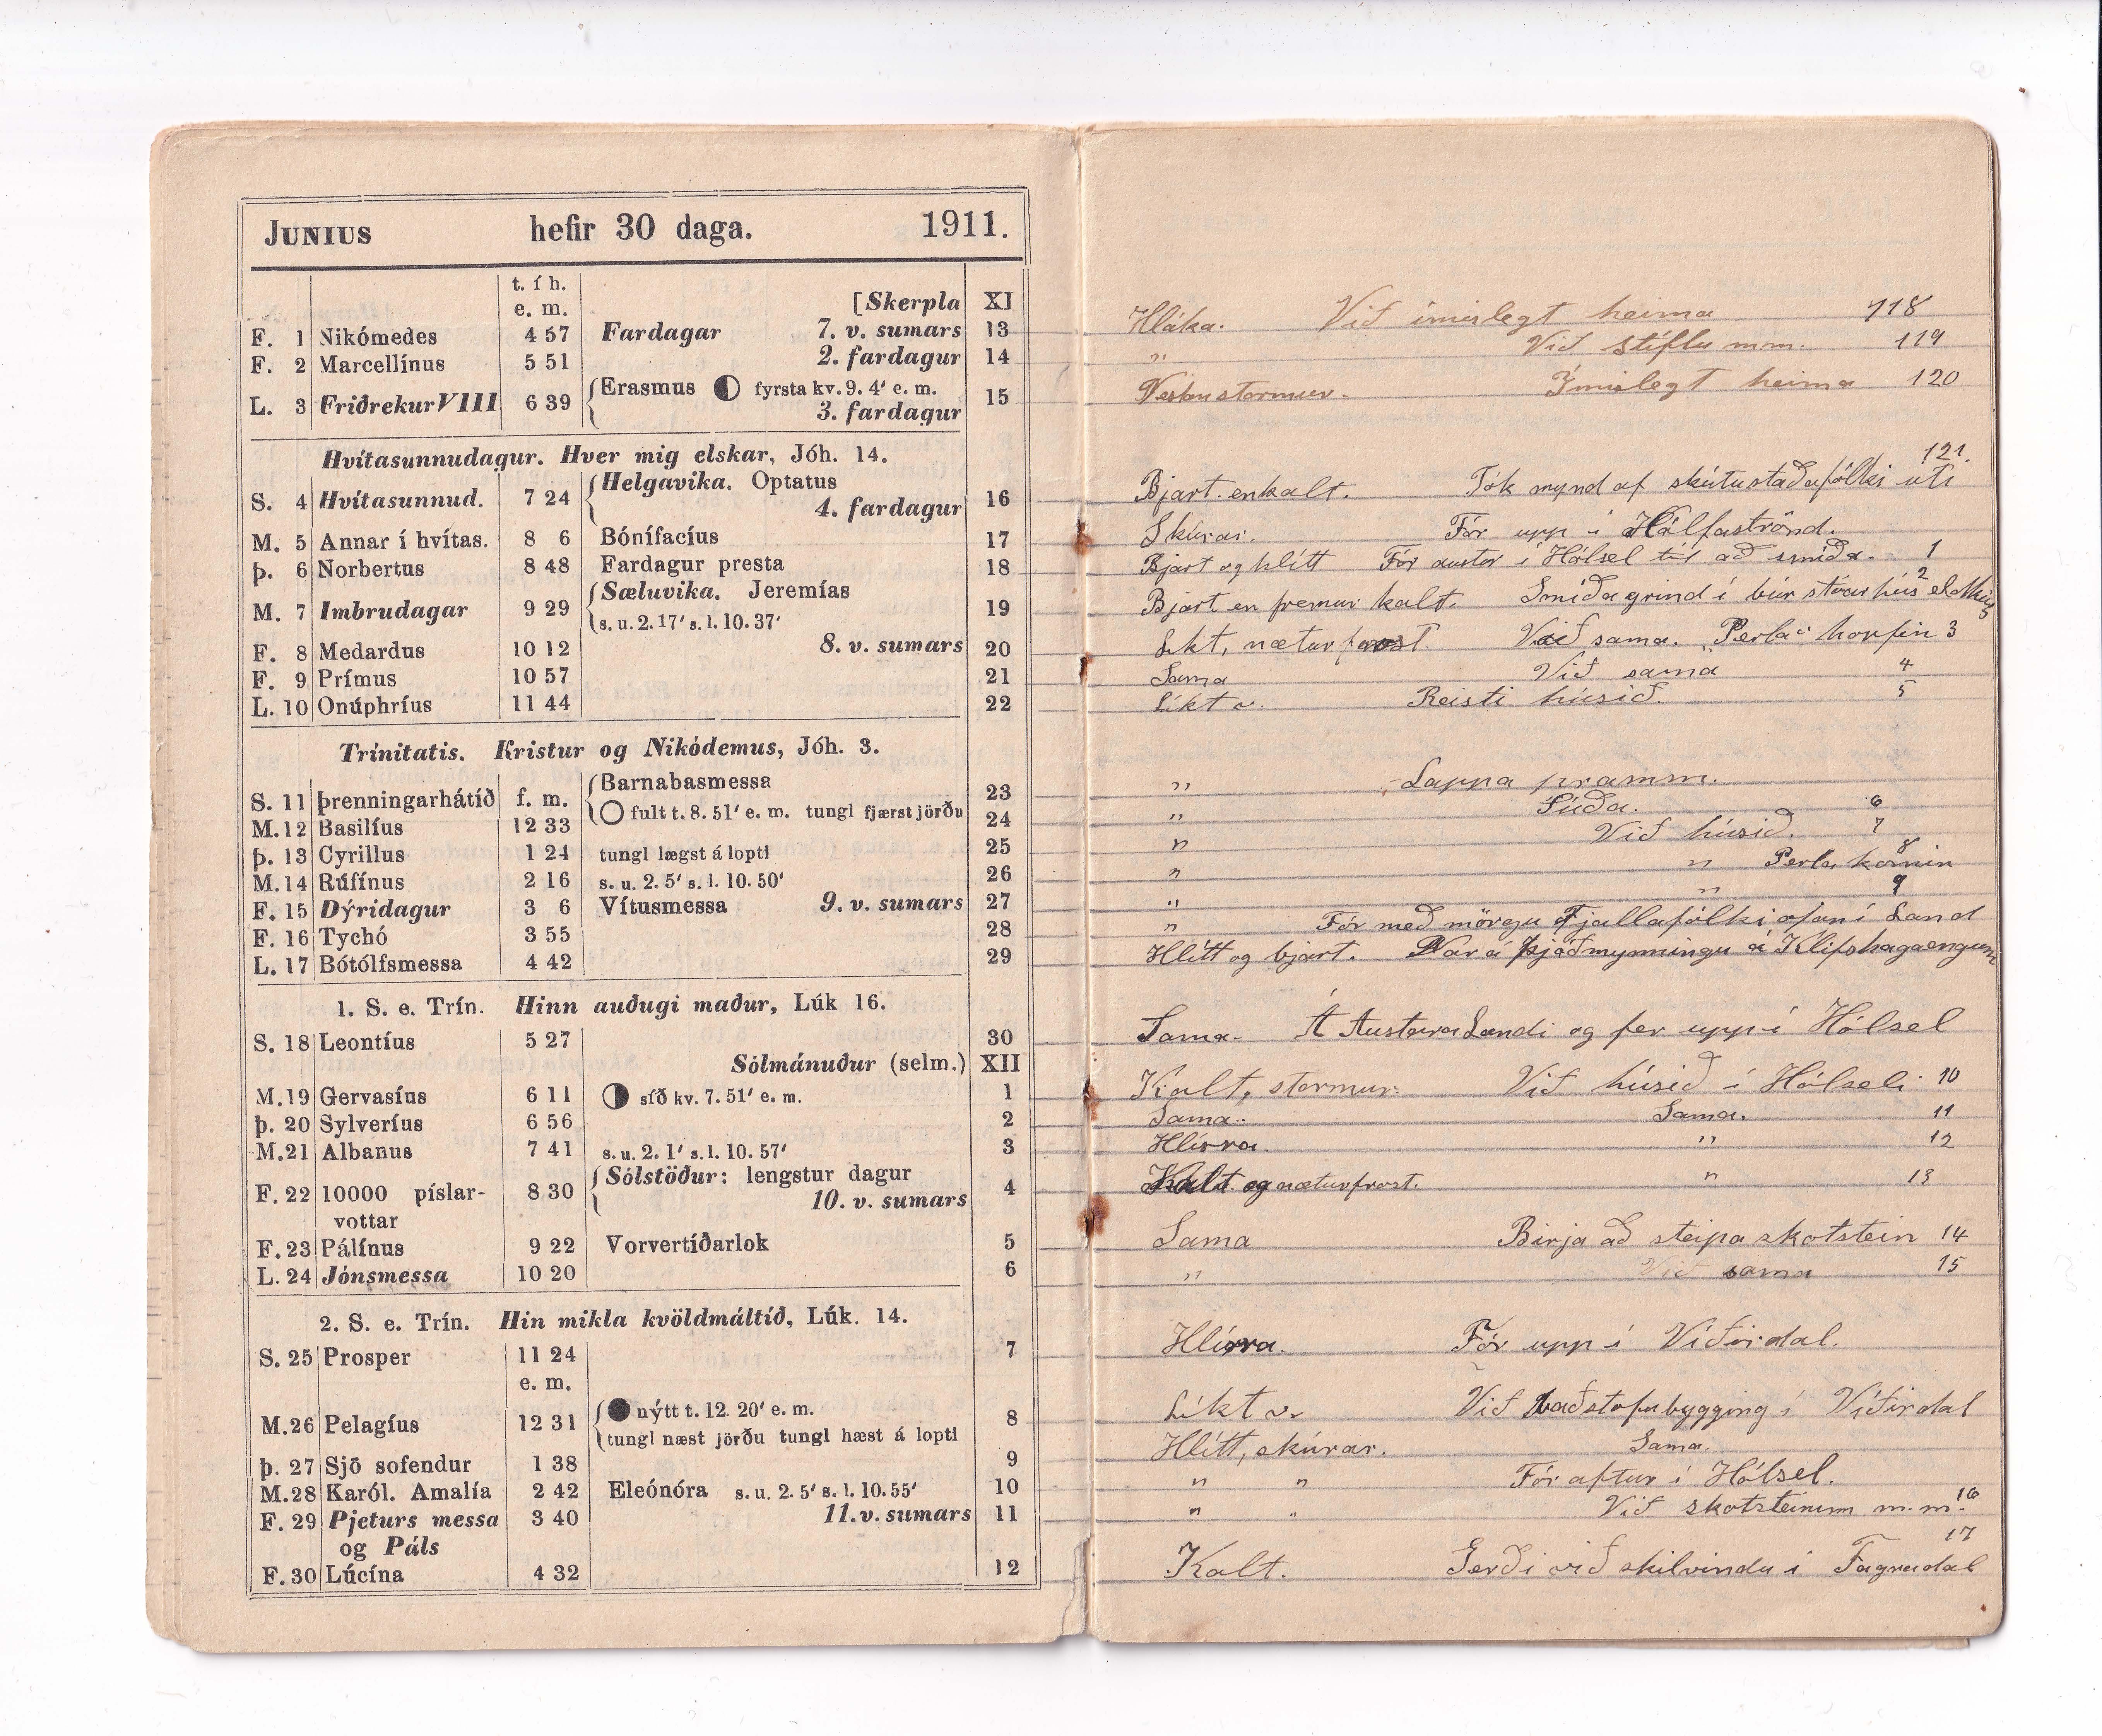 JUNIUS hefir 30 daga. 1911.
t. í h.
e. m. [Skerpla XI
F. 1 Nikómedes 4 57 Fardagar 7. v. sumars 13
F. 2 Marcellínus 5 51 2. fardagur 14
L. 3 Friðrekur VIII 6 39 Erasmus fyrsta kv. 9. 4' e. m. 15
3. fardagur
Hvítasunnudagur. Hver mig elskar, Jóh. 14.
S. 4 Hvítasunnud. 7 24 Helgavika. Optatus 16
4. fardagur
M. 5 Annar í hvítas. 8 6 Bónífacíus 17
Þ. 6 Norbertus 8 48 Fardagur presta 18
M. 7 Imbrudagar 9 29 Sæluvika. Jeremías 19
s. u. 2. 17' s. l. 10. 37'
F. 8 Medardus 10 12 8. v. sumars 20
F. 9 Prímus 10 57 21
L. 10 Onúphríus 11 44 22
Trínitatis. Kristur og Nikódemus, Jóh. 3.
S. 11 Þrenningarhátíð f. m. Barnabasmessa 23
fult t. 8. 51' e. m. tungl fjærst jörðu
M. 12 Basilíus 12 33 24
Þ. 13 Cyrillus 1 24 tungl lægst á lopti 25
M. 14 Rúfínus 2 16 s. u. 2. 5' s. l. 10. 50' 26
F. 15 Dýridagur 3 6 Vítusmessa 9. v. sumars 27
F. 16 Tychó 3 55 28
L. 17 Bótólfsmessa 4 42 29
1. S. e. Trín. Hinn auðugi maður, Lúk 16.
S. 18 Leontíus 5 27 30
Sólmánuður (selm.) XII
M. 19 Gervasíus 6 11 síð kv. 7. 51' e. m. 1
Þ. 20 Sylveríus 6 56 2
M. 21 Albanus 7 41 s. u. 2. 1' s. l. 10. 57' 3
F. 22 10000 píslar- 8 30 Sólstöður: lengstur dagur 4
vottar 10. v. sumars
F. 23 Pálínus 9 22 Vorvertíðarlok 5
L. 24 Jónsmessa 10 20 6
2. S. e. Trín. Hin mikla kvöldmáltíð, Lúk. 14.
S. 25 Prosper 11 24 7
e. m.
M. 26 Pelagíus 12 31 nýtt t. 12. 20' e. m. 8
tungl næst jörðu tungl hæst á lopti
Þ. 27 Sjö sofendur 1 38 9
M. 28 Karól. Amalía 2 42 Eleónóra s. u. 2. 5' s. l. 10. 55' 10
F. 29 Pjeturs messa 3 40 11. v. sumars 11
og Páls
F. 30 Lúcína 4 32 12
Hláka. Við ímislegt heima 118
" Við stíflu m.m. 119
Vestanstormur. Ímislegt heima 120
121.
Bjart en kalt. Tók mynd af skútustaðafólki úti
Skúrar. Fór upp í Hólfaströnd.
Bjart og hlítt Fór austur í Hólsel til að smíða. 1
Bjart en fremur kalt. Smíða grind í búr stvar hús eldhús 2
Líkt, næturfrost. Við sama. "Perla" horfin 3
Sama Við sama 4
Líkt v. Reisti húsið. 5
" Lappa pramm.
" Súða. 6
" Við húsið. 7
" " Perla komin 8
" " 9
" Fór með mörgu Fjallafólki ofan í Land
Hlítt og bjart. Var á þjóðmynningu á Klifshagaengum
Sama. Á Austara Landi og fer upp í Hólsel
Kalt, stormur. Við húsið í Hólseli 10
Sama. Sama. 11
Hlírra. " 12
Kalt og næturfrost. " 13
Sama Birja að steipa skotstein 14
" Við sama 15
Hlírra. Fór upp í Víðirdal.
Líkt v. Við baðstofubygging í Víðirdal
Hlítt, skúrar. Sama.
" " Fór aftur í Hólsel.
" " Við skotsteininn m.m. 16
Kalt. Gerði við skilvindu í Fagradal 17